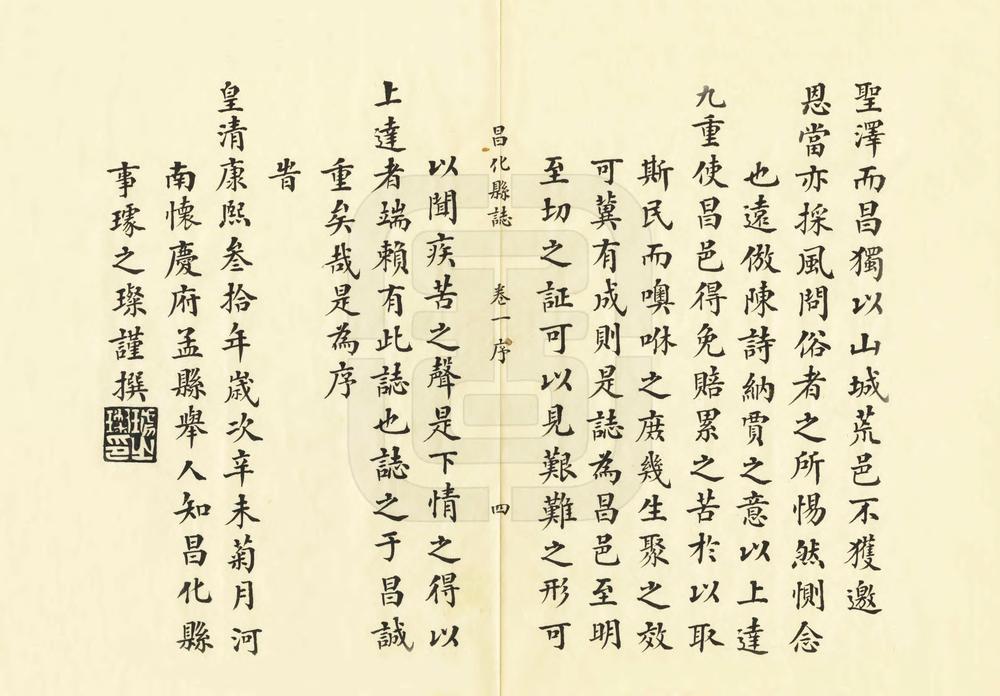 聖澤而昌獨以山城荒邑不獲邀
恩當亦採風問俗者之所惕然惻念
也遠倣陳詩納賈之意以上達
九重使昌邑得免賠累之苦於以取
斯民而噢咻之庶幾生聚之效
可冀有成則是誌為昌邑至明
至切之証可以見艱難之形可
昌化縣誌 卷一序 四
以聞疾苦之聲是下情之得以
上達者端賴有此誌也誌之于昌誠
重矣哉是為序
旹
皇清康熙叄拾年歲次辛未菊月河
南懷慶府孟縣舉人知昌化縣
事璩之璨謹撰